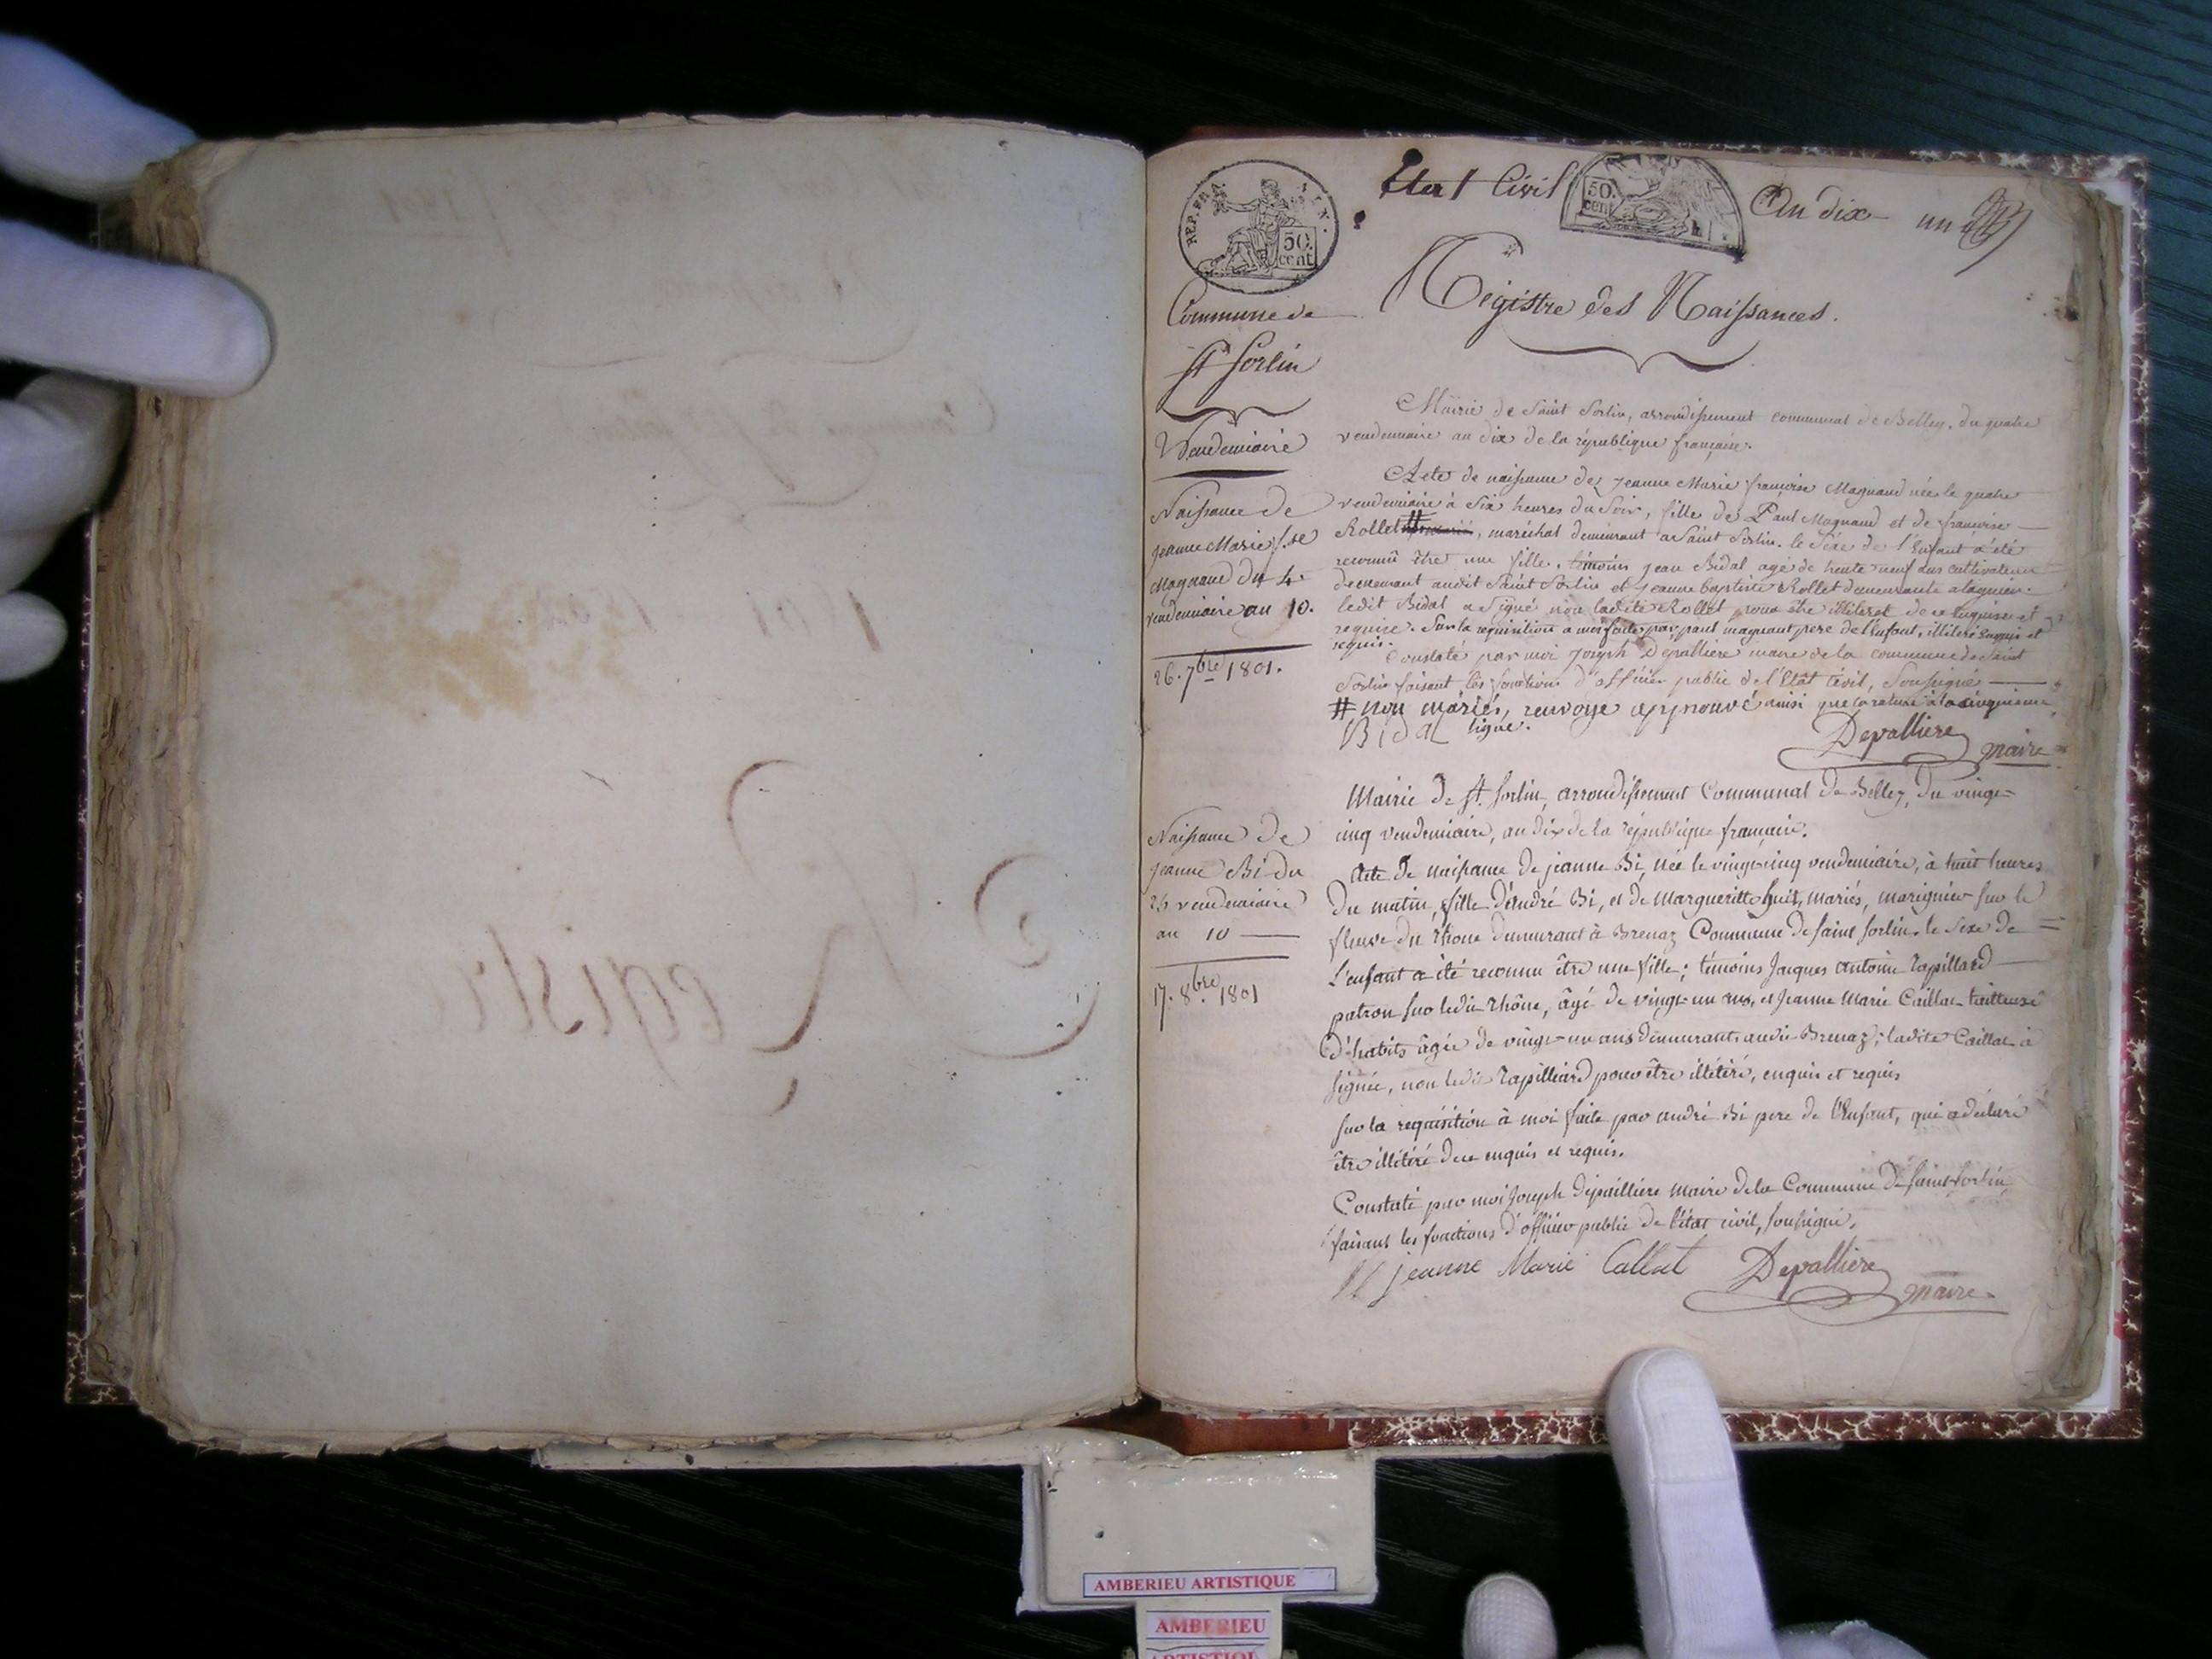 REP. FRA.
50.
cent.
Etat Civil
50.
cent
An dix
un
Commune de
St Sorlin
Régistre des Naissances.
Vendemiaire
Mairie de Saint Sorlin, arrondissement communal de Belley. du quatre
vendemiaire an dix de la république française.
Naissance de
jeanne Marie f.se
Magnand du 4.
vendemiaire an 10.
26. 7bre 1801.
Acte de naissance de jeanne Marie françoise Magnand née le quatre
vendemiaire à Six heures du Soir, fille de Paul Magnand et de françoise
Rollet #, maréchal demeurant a Saint Sorlin. le Sexe de l'Enfant a été
reconnu être une fille. témoins jean Bidal agé de trente neuf ans cultivateur
demeurant audit Saint Sorlin et jeanne baptiste Rollet demeurante a lagnieu.
ledit Bidal a Signé non ladite Rollet pour être illiteret de ce enquise et
requise. Sur la requisition a moi faite par paul magnant pere de l'enfant, illiteré enquis et
requis.
Constaté par moi joseph Depalliere maire de la commune de Saint
Sorlin faisant les fonctions d'officier public de l'Etat Civil, Soussigné
# non mariés, renvoye approuvé ainsi que la rature à la cinquieme
ligne.
Bidal
Depalliere maire
Mairie de St. Sorlin, arrondissement Communal de Belley, du vingt
cinq vendemiaire, an dix de la république française.
Naissance de
jeanne Bi du
25 vendemiaire
an 10
17. 8bre 1801
Acte de naissance de jeanne Bi, née le vingt cinq vendemiaire, à huit heures
Du matin, fille d'andré Bi, et de Margueritte huit, mariés, marignier sur le
fleuve du rhone demeurant à Brenaz Commune de saint Sorlin. le Sexe de
L'enfant a été reconnu être une fille; témoins Jacques antoine rapillard
patron sur ledit rhône, âgé de vingt un ans, et Jeanne Marie Caillat tailleuse
d'habits âgée de vingt un ans demeurants audit Brenaz; ladite Caillat à
signée, non ledit rapilliard pour être illétéré, enquis et requis
sur la requisition à moi faite par andré Bi pere de l'enfant, qui a déclaré
être illétéré de ce enquis et requis.
Constaté par moi Joseph Dépallliere maire de la Commune de Saint-Sorlin
faisant les fonctions d'officier public de l'état civil, soussigné.
jeanne Marie Callat
Depalliere
maire
AMBERIEU ARTISTIQUE
AMBERIEU
ARTISTIQUE